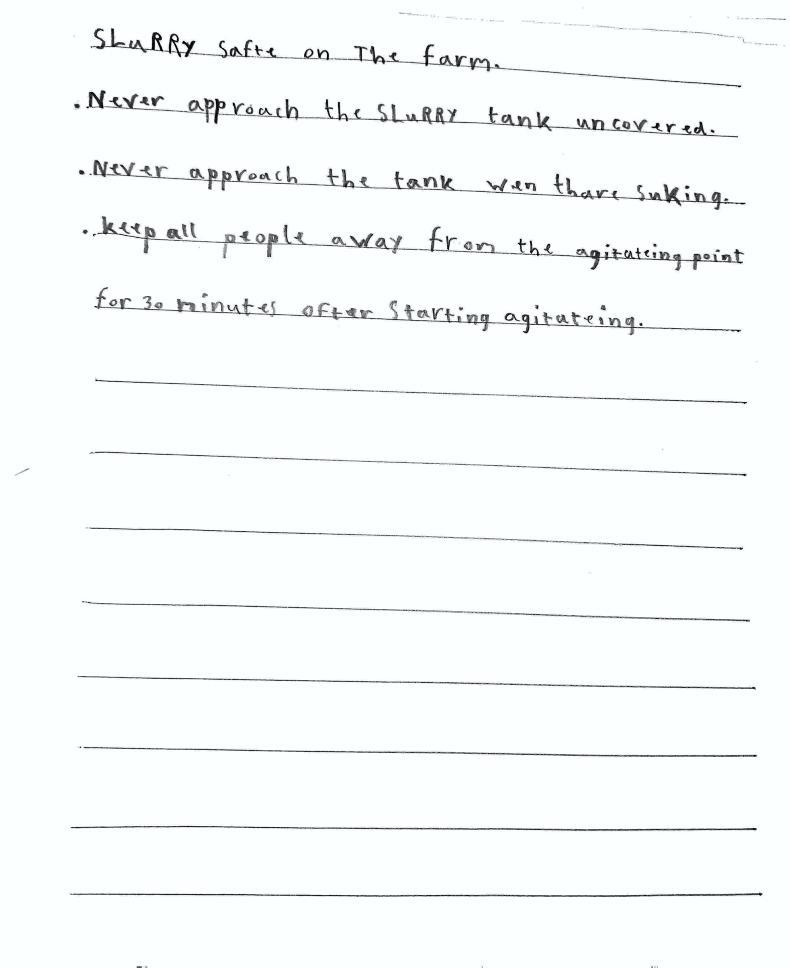 SLURRY Safte on The farm.
. Never approach the SLURRY tank uncovered.
. Never approach the tank wen thare suking.
. keep all people away from the agitateing point
for 30 minutes ofter Starting agitateing.